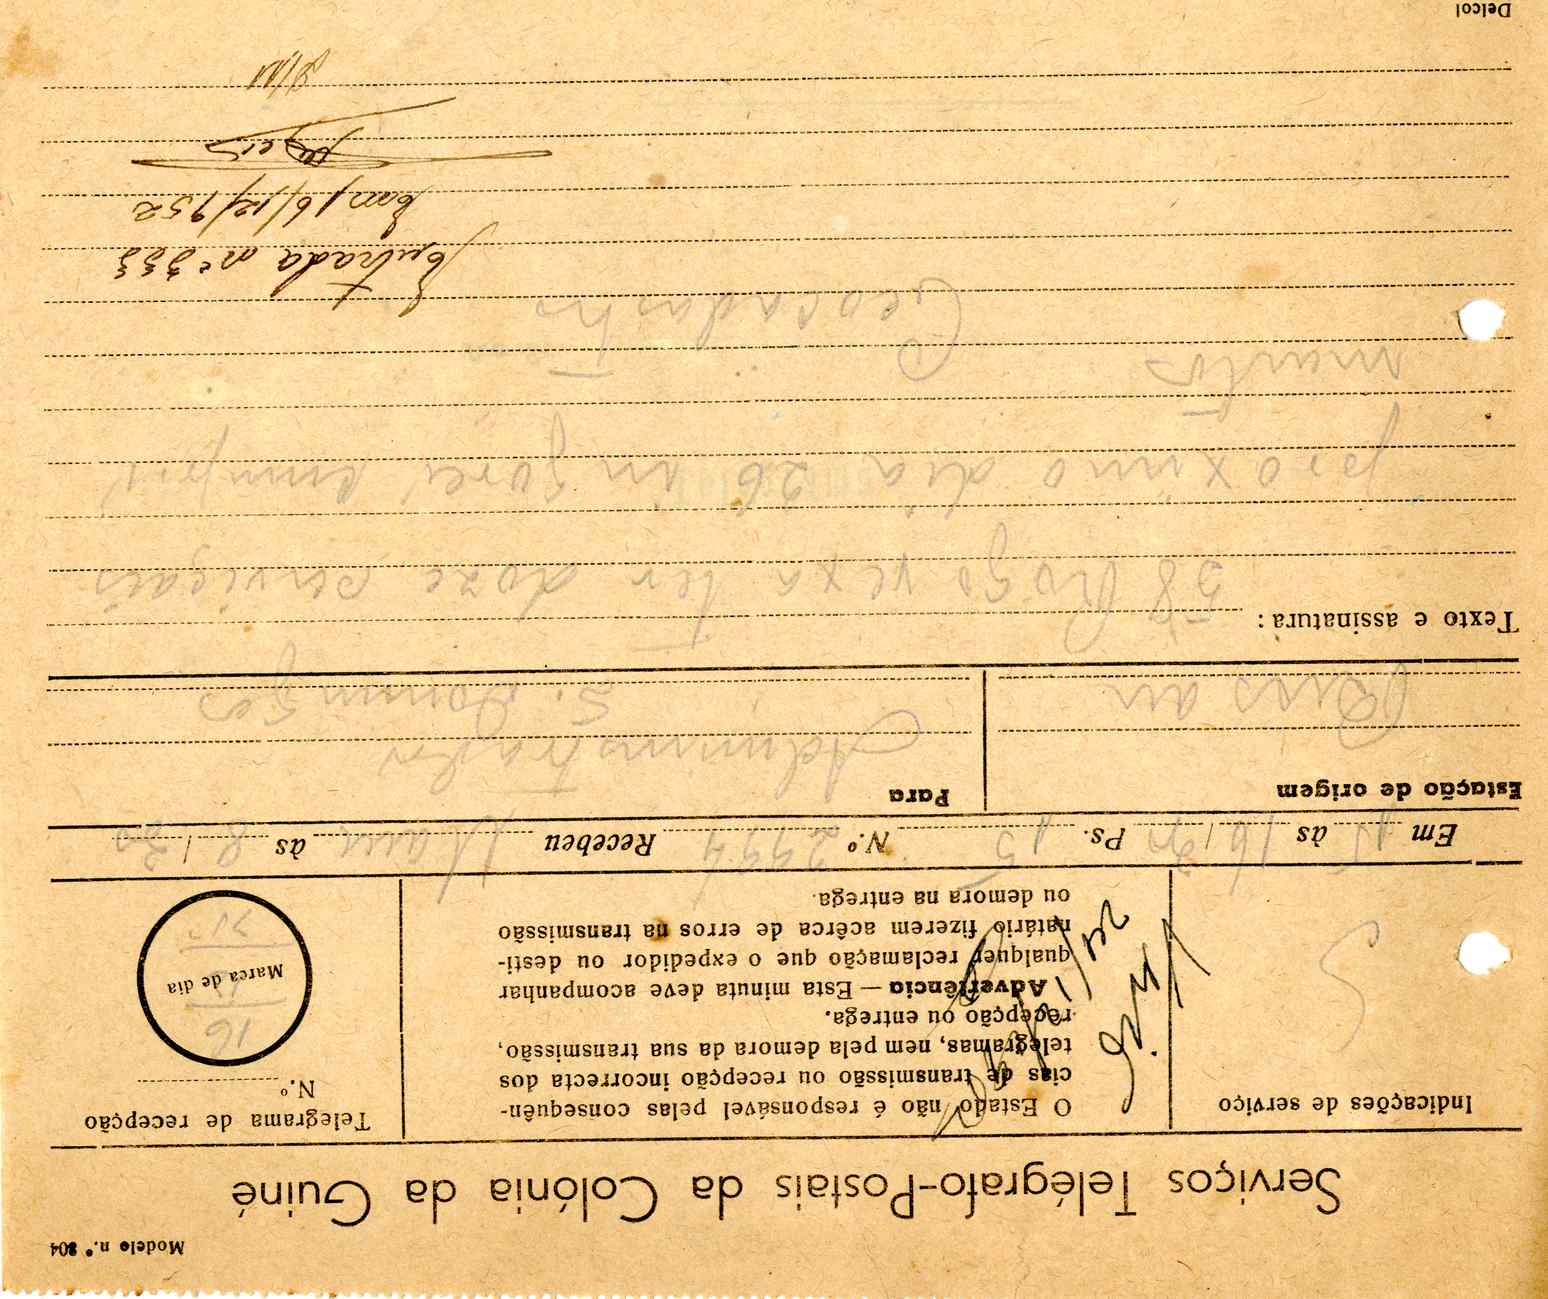 Modelo n.º 804
Serviços Telégrafo-Postais da Colónia da Guiné
Indicações de serviço
S
O Estado não é responsável pelas consequên-
cias de transmissão ou recepção incorrecta dos
telegramas, nem pela demora da sua transmissão,
recepção ou entrega.
Advertência — Esta minuta deve acompanhar
qualquer reclamação que o expedidor ou desti-
natário fizerem acêrca de erros na transmissão
ou demora na entrega.
Telegrama de recepção
N.º
16
12
Marca de dia
Em 15 às 16 30 Ps. 15 N.º 2994 Recebeu às 8 30
Estação de origem
Bissau
Para
Administrador
S. Domingos
Texto e assinatura:
58 Rogo vexa ter doze serviçais
proximo dia 26 in
Geocadastro
Entrada nº 333
Em, 16/12/952
Delcol